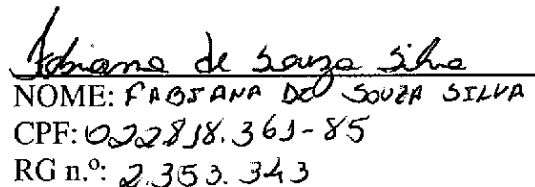 Fabiana de Souza Silva
NOME: FABIANA DE SOUZA SILVA
CPF: 022818.361-85
RG n.º: 2.353.343